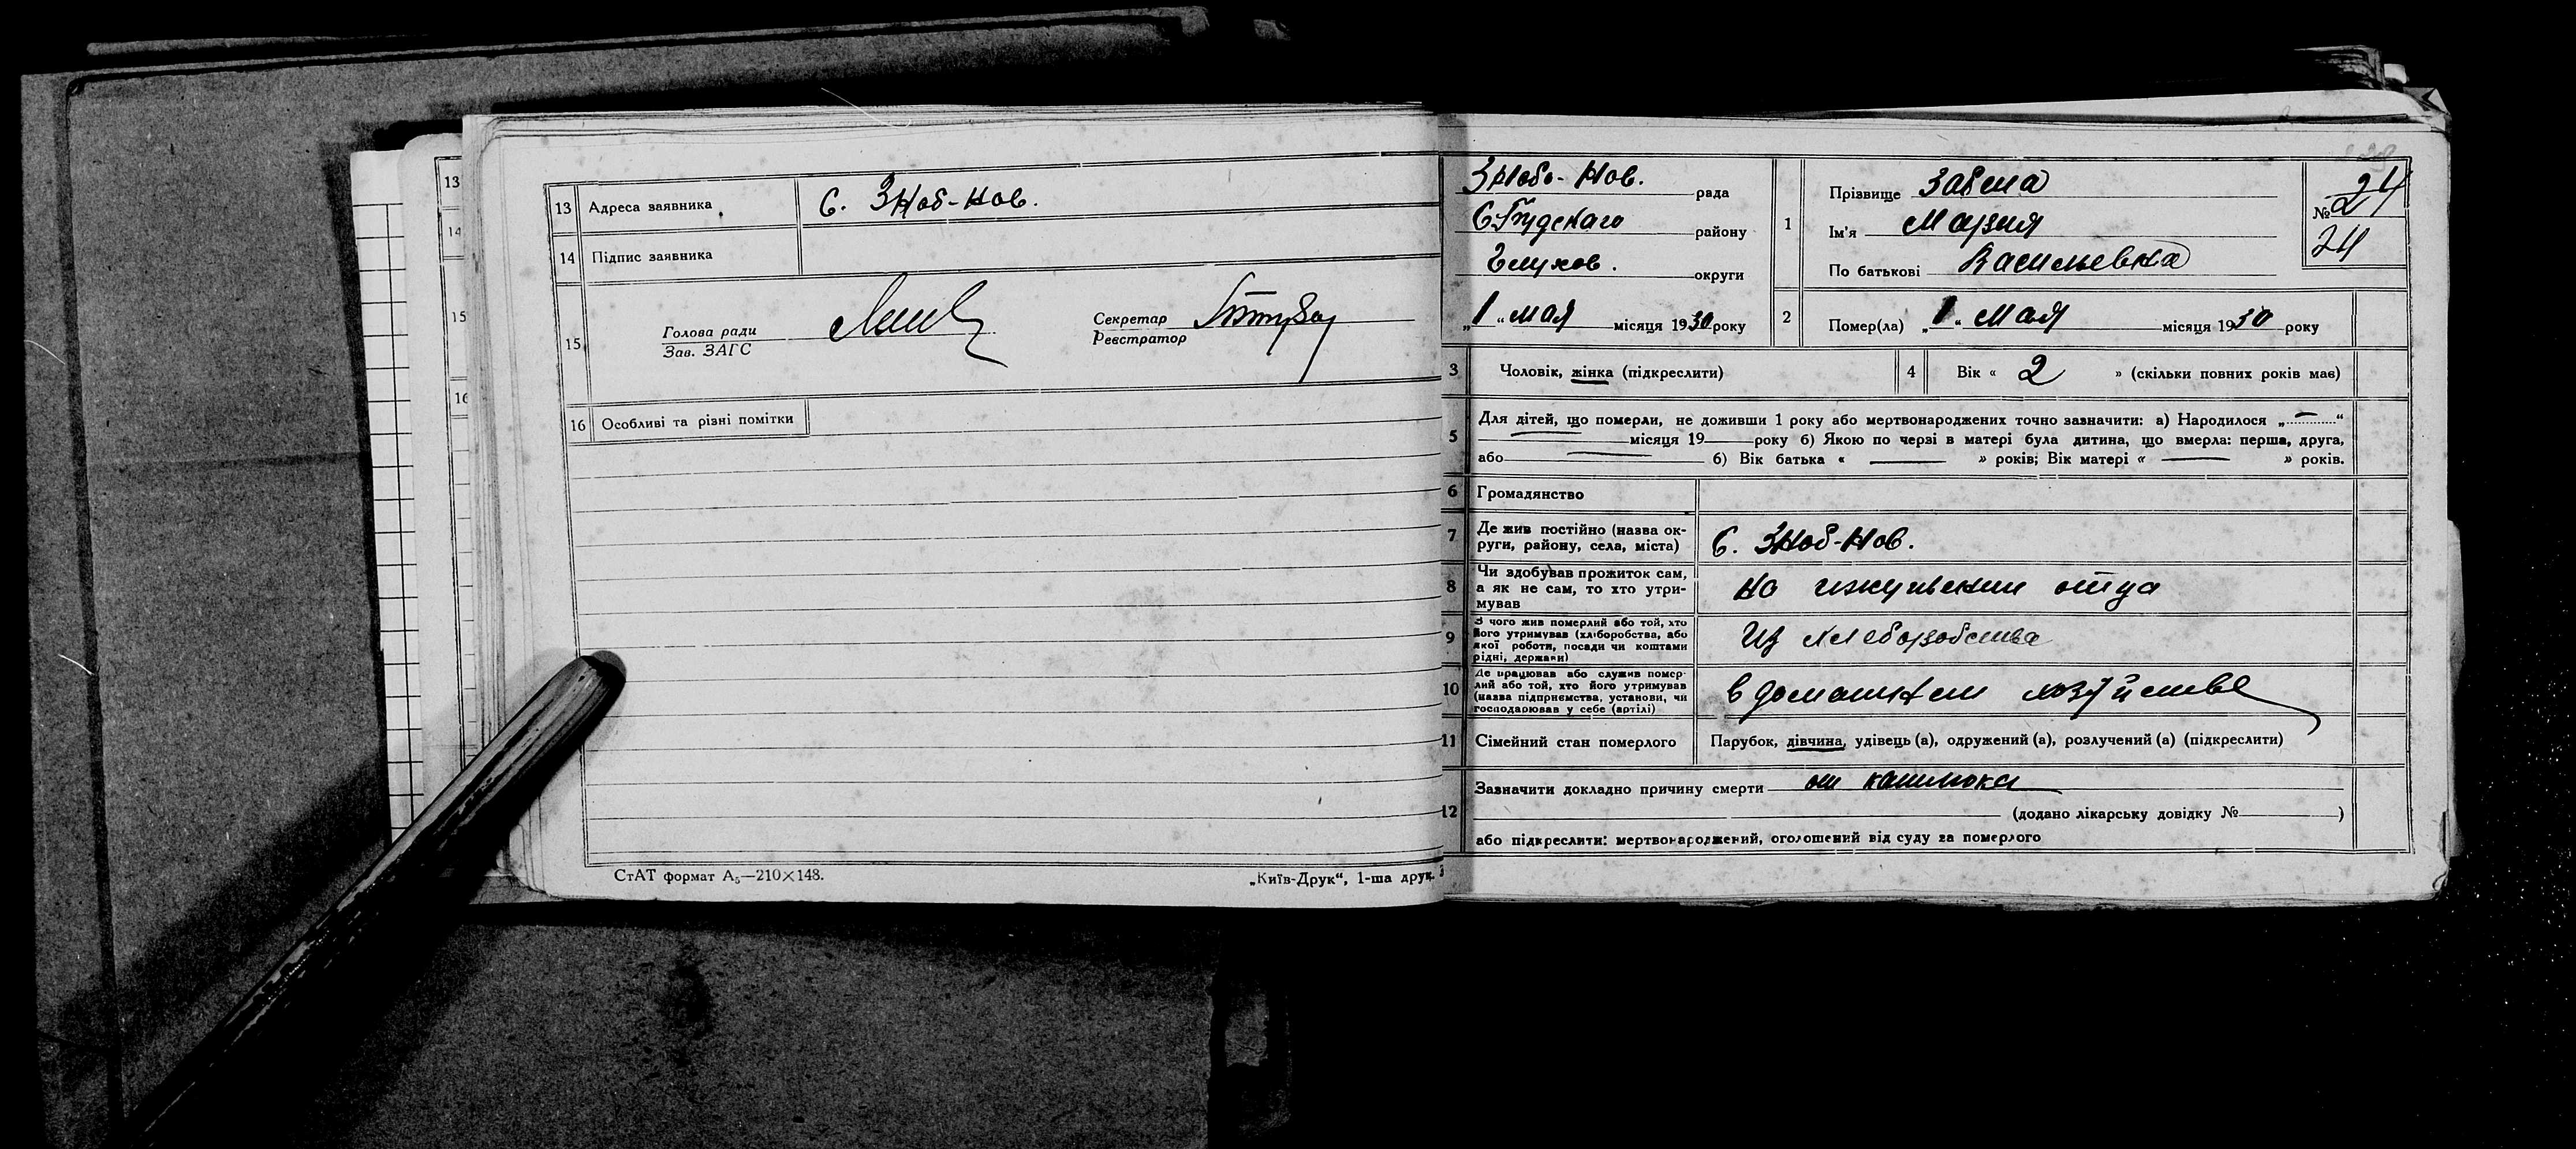 13
14
15
16
13 Адреса заявника С. Зноб-Нов.
14 Підпис заявника
15 Голова ради
Зав. ЗАГС
Секретар
Реєстратор
16 Особливі та різні помітки
СтАТ формат А₅—210×148.
„Київ-Друк“, 1-ша друк.
Зноб-Нов. рада
С-Будскаго району
Глухов. округи
„1“ мая місяця 1930 року
1 Прізвище Забела
Ім'я Мария
По батькові Васильевна
№ 24
24
2 Помер(ла) „1“ мая місяця 1930 року
3 Чоловік, жінка (підкреслити)
4 Вік « 2 » (скільки повних років має)
5 Для дітей, що померли, не доживши 1 року або мертвонароджених точно зазначити: а) Народилося „—“
місяця 19 року б) Якою по черзі в матері була дитина, що вмерла: перша, друга,
або б) Вік батька « — » років; Вік матері « — » років.
6 Громадянство
7 Де жив постійно (назва ок-
руги, району, села, міста)
С. Зноб-Нов.
8 Чи здобував прожиток сам,
а як не сам, то хто утри-
мував
на иждивении отца
9 З чого жив померлий або той, хто
його утримував (хліборобства, або
якої роботи, посади чи коштами
рідні, держави)
Из хлеборобства
10 Де працював або служив помер-
лий або той, хто його утримував
(назва підприємства, установи, чи
господарював у себе (артілі)
в домашнем хозяйстве
11 Сімейний стан померлого Парубок, дівчина, удівець (а), одружений (а), розлучений (а) (підкреслити)
12 Зазначити докладно причину смерти от кашлюка
(додано лікарську довідку № )
або підкреслити: мертвонароджений, оголошений від суду за померлого